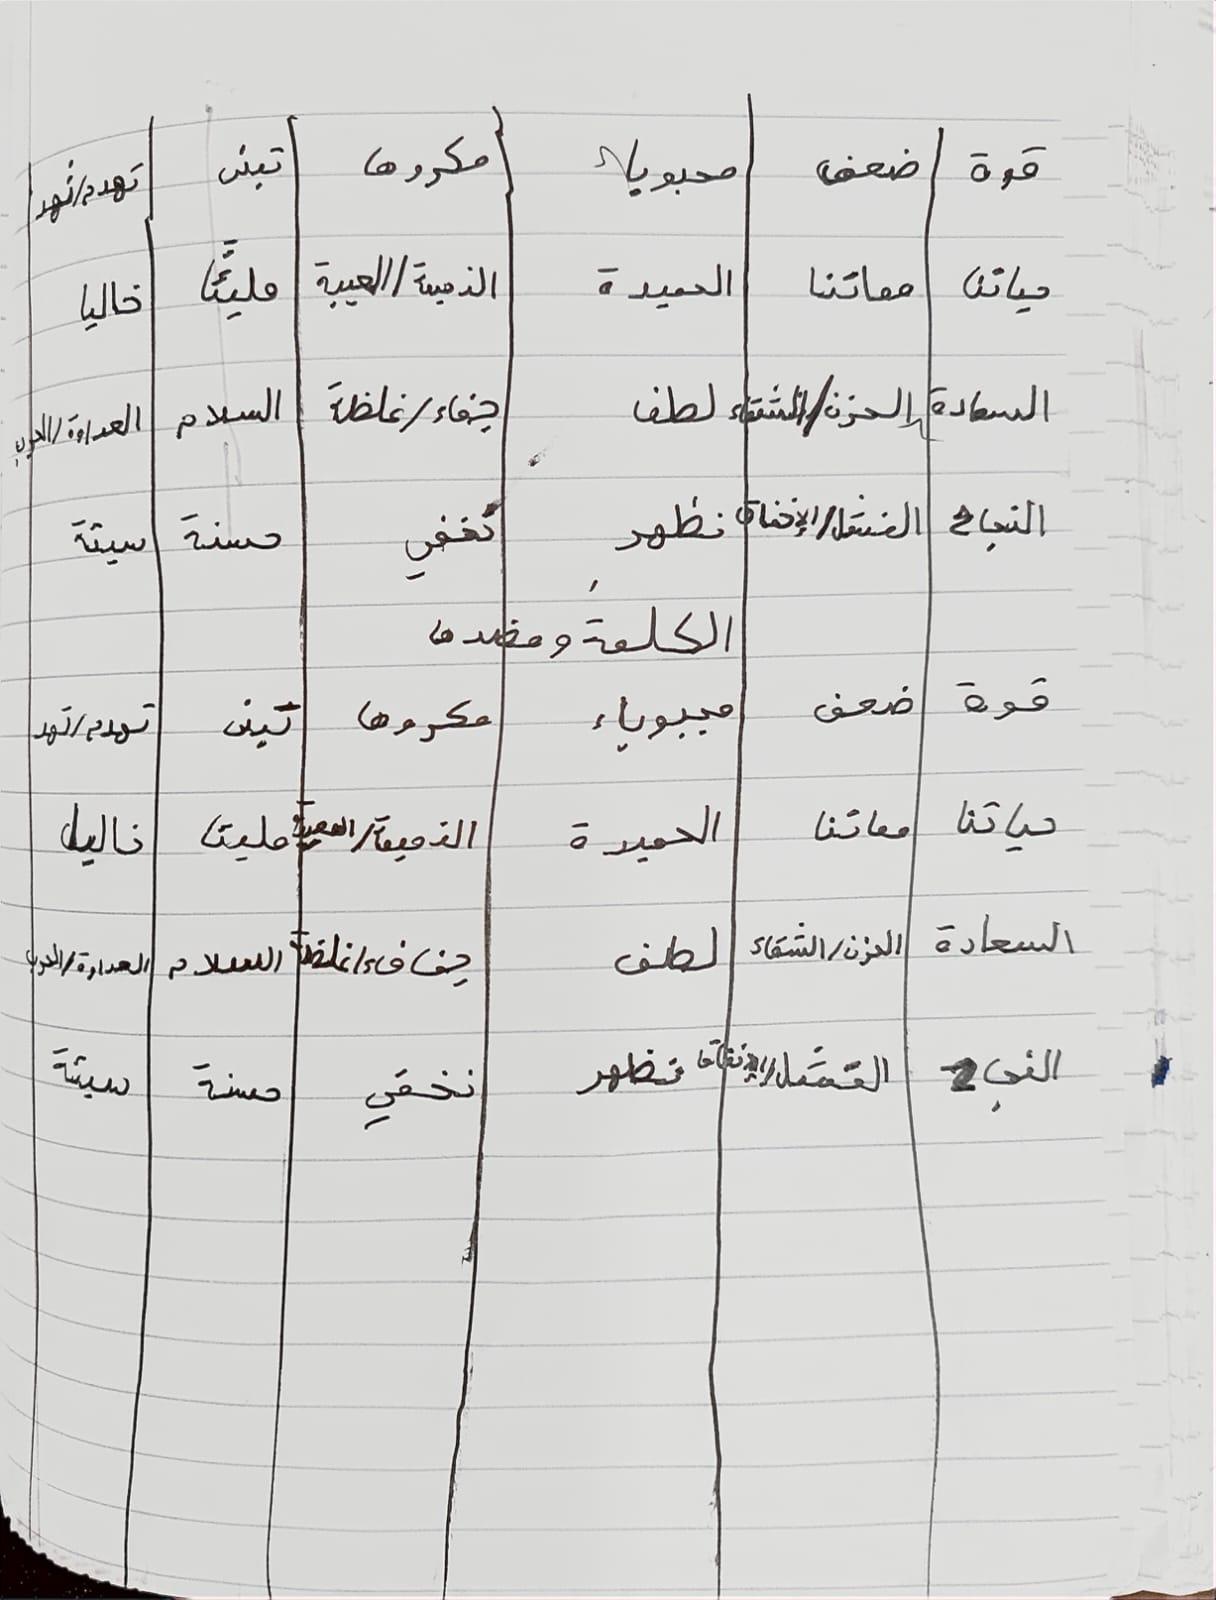 قوة ضعف محبوباء مكروها تبنى تهدم/تهد
حياتنا مماتنا الحميدة الذميمة/المعيبة مليئا خاليا
السعادة الحزن/الشقاء لطف جفاء/غلظة السلام العداوة/الحرب
النجاح الفشل/الإخفاق نظهر نخفي حسنة سيئة
الكلمة ومضدها
قوة ضعف محبوباء مكروها تبنى تهدم/تهد
حياتنا مماتنا الحميدة الذميمة/المعيبة مليئا خاليا
السعادة الحزن/الشقاء لطف جفافاء/غلظة السلام العداوة/الحرب
النجاح نظهر نخفي حسنة سيئة